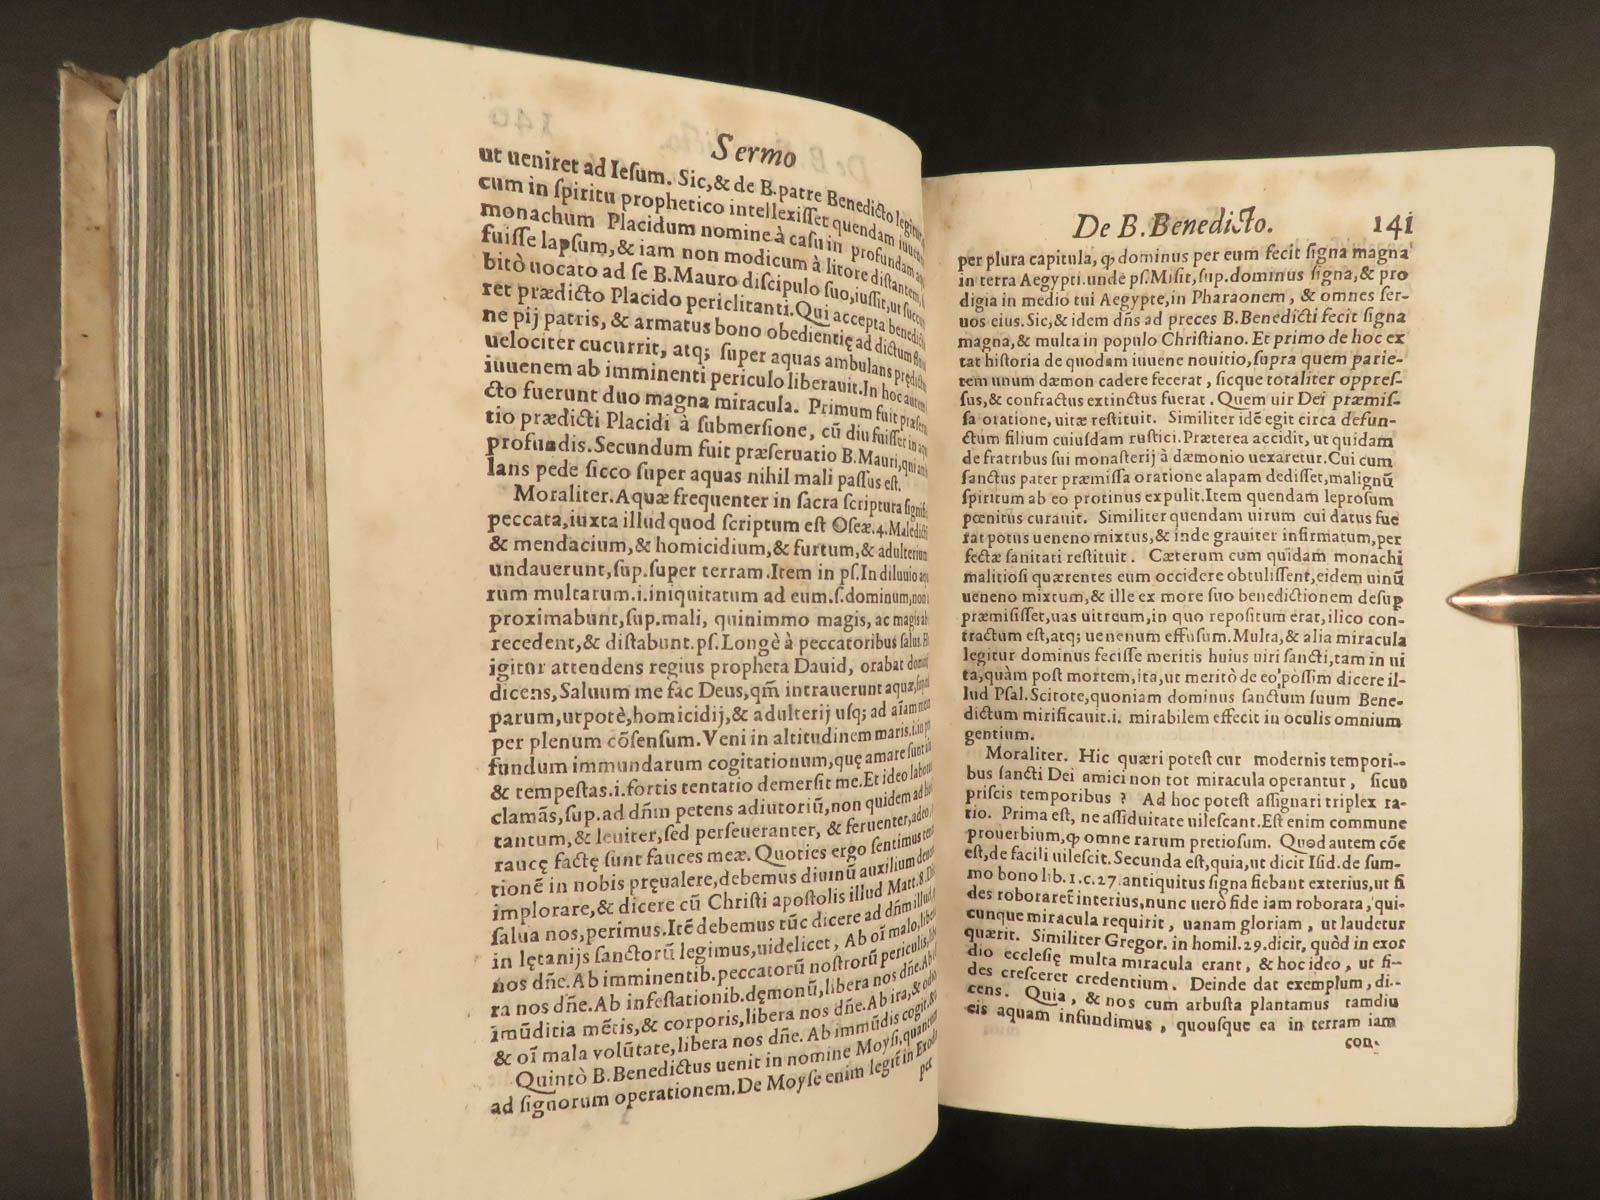 Sermo
ut ueniret ad Iesum. Sic,& de B.patre Benedicto legitur,
cum in ſpiritu prophetico intellexiſſet quendam iuuenem
monachum Placidum nomine à caſu in profundam
fuiſſe lapſum,& iam non modicum à litore diſtantem,
bitò uocato ad ſe B.Mauro diſcipulo ſuo,iuſſit,ut ſuccur
ret prædicto Placido periclitanti.Qui accepta benedictio
ne pij patris, & armatus bono obedientię ad dictum
uelociter cucurrit, atq; ſuper aquas ambulans prędictum
iuuenem ab imminenti periculo liberauit.In hoc autem
cto fuerunt duo magna miracula. Primum fuit præſerua
tio prædicti Placidi à ſubmerſione, cū diu fuiſſet in aquis
profundis.Secundum fuit præſeruatio B.Mauri,qui ambu
lans pede ſicco ſuper aquas nihil mali paſſus eſt.
Moraliter.Aquæ frequenter in ſacra ſcriptura ſignifi
peccata,iuxta illud quod ſcriptum eſt Oſeæ.4.Maledictū
& mendacium,& homicidium,& furtum,& adulterium
undauerunt,ſup.ſuper terram.Item in pſ.In diluuio aqua
rum multarum.i.iniquitatum ad eum.ſ.dominum,non
proximabunt,ſup.mali, quinimmo magis, ac magis ab
recedent,& diſtabunt.pſ.Longè à peccatoribus ſalus.
igitur attendens regius propheta Dauid, orabat dominū
dicens, Saluum me fac Deus,qm̄ intrauerunt aquæ,
parum,utpotè,homicidij,& adulterij uſq; ad aīam meam
per plenum cōſenſum.Veni in altitudinem maris.i.in pro
fundum immundarum cogitationum,quę amare ſunt
& tempeſtas.i.fortis tentatio demerſit me.Et ideo laboraui
clamās,ſup.ad dn̄m petens adiutoriū,non quidem ad
tantum,& leuiter,ſed perſeueranter, & feruenter,adeo
raucę factę ſunt fauces meæ. Quoties ergo ſentimus tenta
tionē in nobis pręualere,debemus diuinū auxilium deuote
implorare,& dicere cū Chriſti apoſtolis illud Matt.8.
ſalua nos,perimus.Itē debemus tūc dicere ad dn̄m illud,
in lętanijs ſanctorū legimus,uidelicet, Ab oī malo,libera
nos dn̄e.Ab imminentib.peccatorū noſtrorū periculis,libe
ra nos dn̄e.Ab infeſtationib.dęmonū,libera nos dn̄e.Ab
imūditia mētis,& corporis,libera nos dn̄e.Ab ira,& odio
& oī mala volūtate,libera nos dn̄e. Ab immūdis cogit.&
Quintò B.Benedictus uenit in nomine Moyſi,quantum
ad ſignorum operationem.De Moyſe enim legit̄ in Exodo
per
De B. Benedicto. 141
per plura capitula, ꝙ dominus per eum fecit ſigna magna
in terra Aegypti.unde pſ.Miſit,ſup.dominus ſigna,& pro
digia in medio tui Aegypte,in Pharaonem, & omnes ſer-
uos eius.Sic,& idem dn̄s ad preces B.Benedicti fecit ſigna
magna,& multa in populo Chriſtiano. Et primo de hoc ex
tat hiſtoria de quodam iuuene nouitio,ſupra quem parie-
tem unum dæmon cadere fecerat, ſicque totaliter oppreſ-
ſus,& confractus extinctus fuerat. Quem uir Dei præmiſ-
ſa oratione, uitæ reſtituit. Similiter idē egit circa defun-
ctum filium cuiuſdam ruſtici.Præterea accidit, ut quidam
de fratribus ſui monaſterij à dæmonio uexaretur.Cui cum
ſanctus pater præmiſſa oratione alapam dediſſet,malignū
ſpiritum ab eo protinus expulit.Item quendam leproſum
pœnitus curauit. Similiter quendam uirum cui datus fue
rat potus ueneno mixtus,& inde grauiter infirmatum,per
fectæ ſanitati reſtituit. Cæterum cum quidam monachi
malitioſi quærentes eum occidere obtuliſſent,eidem uinū
ueneno mixtum,& ille ex more ſuo benedictionem deſup
præmiſiſſet,uas uitreum,in quo repoſitum erat,ilico con-
tractum eſt,atq; uenenum effuſum.Multa,& alia miracula
legitur dominus feciſſe meritis huius uiri ſancti,tam in ui
ta,quàm poſt mortem,ita,ut meritò de eo poſſim dicere il-
lud Pſal.Scitote,quoniam dominus ſanctum ſuum Bene-
dictum mirificauit.i. mirabilem effecit in oculis omnium
gentium.
Moraliter. Hic quæri poteſt cur modernis tempori-
bus ſancti Dei amici non tot miracula operantur, ſicut
priſcis temporibus? Ad hoc poteſt aſſignari triplex ra-
tio. Prima eſt, ne aſſiduitate uileſcant.Eſt enim commune
prouerbium,ꝙ omne rarum pretioſum. Quod autem cōe
eſt,de facili uileſcit.Secunda eſt,quia,ut dicit Iſid.de ſum-
mo bono lib.1.c.27.antiquitus ſigna fiebant exterius,ut fi
des roboraret̄ interius,nunc uerò fide iam roborata, qui-
cunque miracula requirit, uanam gloriam, ut laudetur
quærit. Similiter Gregor. in homil.29.dicit, quòd in exor
dio eccleſię multa miracula erant, & hoc ideo, ut fi-
des creſceret credentium. Deinde dat exemplum, di-
cens. Quia, & nos cum arbuſta plantamus tamdiu
eis aquam infundimus, quouſque ea in terram iam
con-